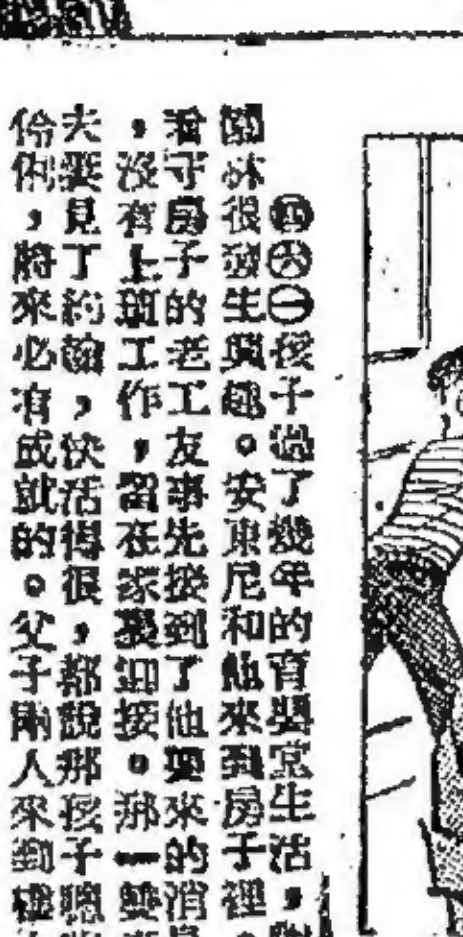 ㊃㊅㊀孩子過了幾年的育嬰堂生活，
園林很發生興趣。安東尼和他來到房子裡，
看守房子的老工友事先接到了他要來的消息
，沒有上班工作，留在家裏迎接。那一雙
夫妻見了約翰，快活得很，都說那孩子聰
伶俐，將來必有成就的。父子兩人來到